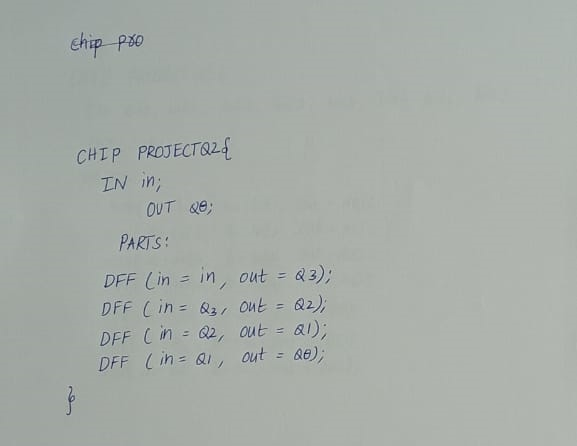 chip pro
CHIP PROJECTQ2{
IN in;
OUT Q0;
PARTS:
DFF (in = in, out = Q3);
DFF (in = Q3, out = Q2);
DFF (in = Q2, out = Q1);
DFF (in = Q1, out = Q0);
}